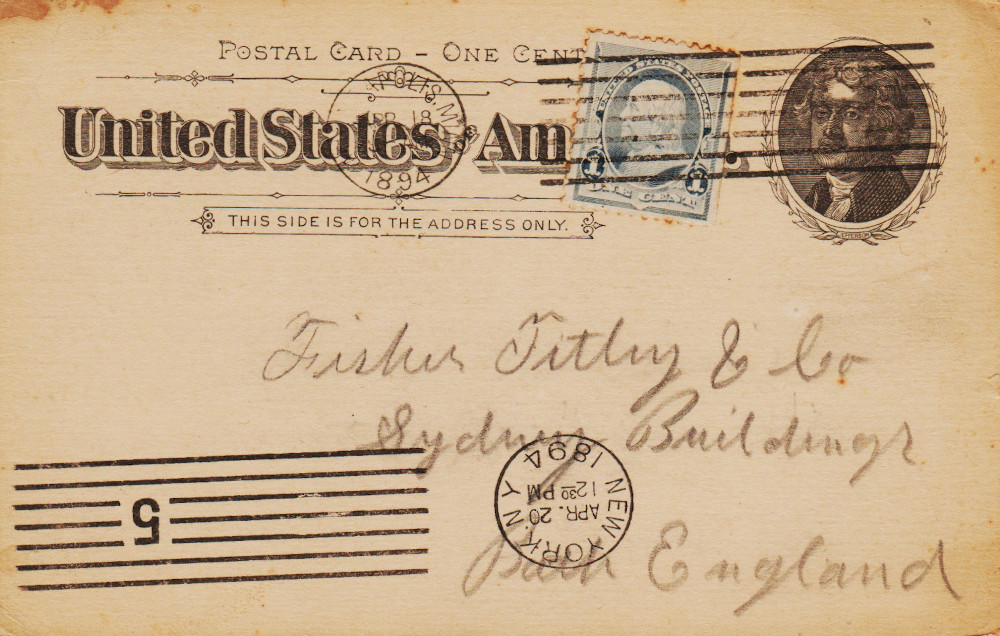 POSTAL CARD - ONE CENT
United States Am
THIS SIDE IS FOR THE ADDRESS ONLY.
APOLIS. MINN
APR 18
1894
1 1
ONE CENT
JEFFERSON
Fisher Titley & Co
Sydney Buildings
Bath England
NEW YORK, NY
APR. 20
12 30 PM
1894
5